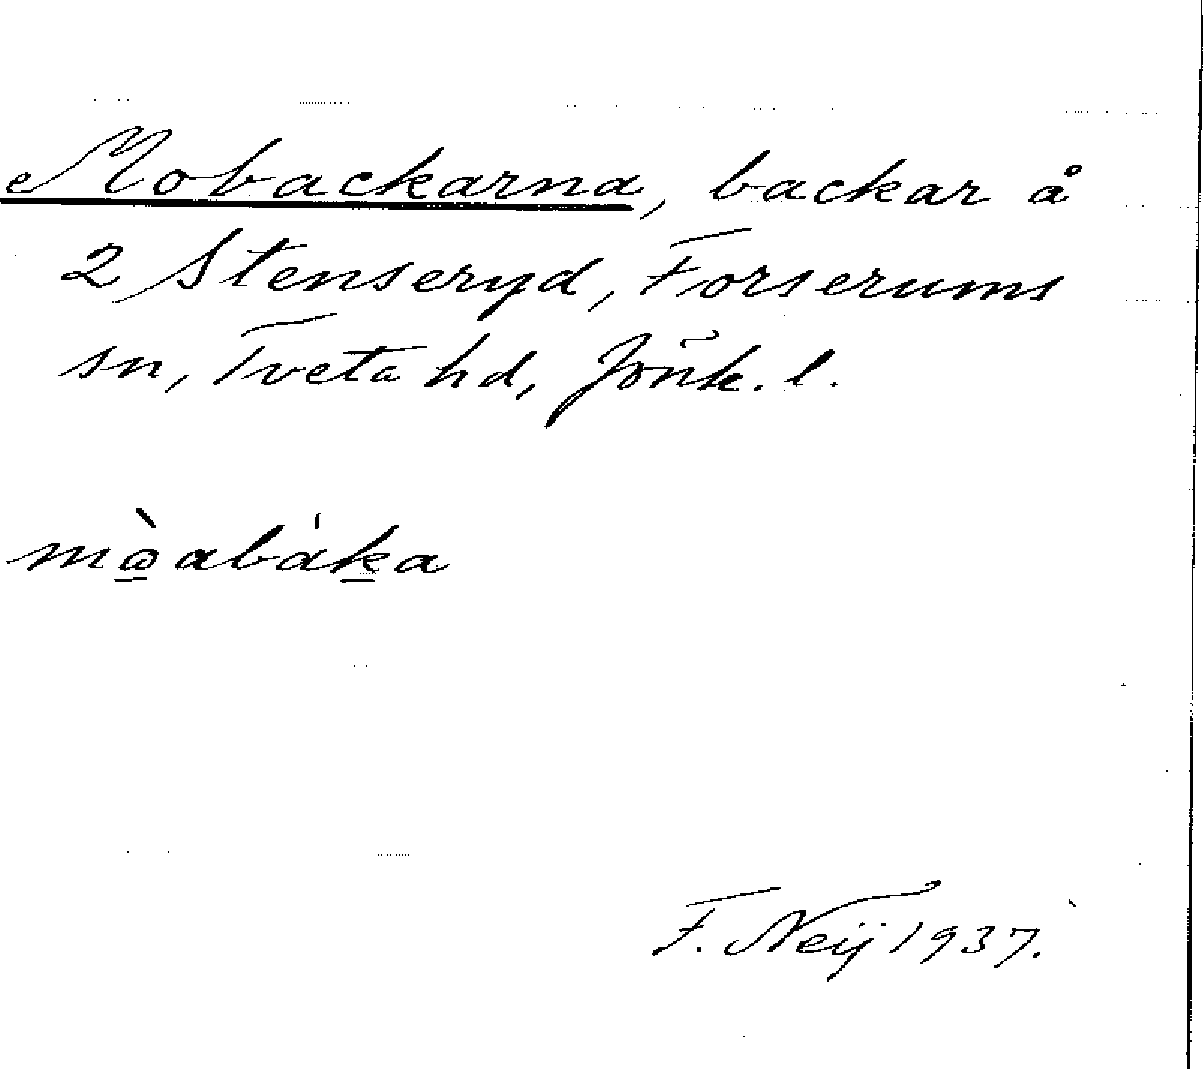 Mobackarna, backar å
2 Stenseryd, Forserums
sn, Tveta hd, Jönk. l.
mòabáka
F. Neij 1937.